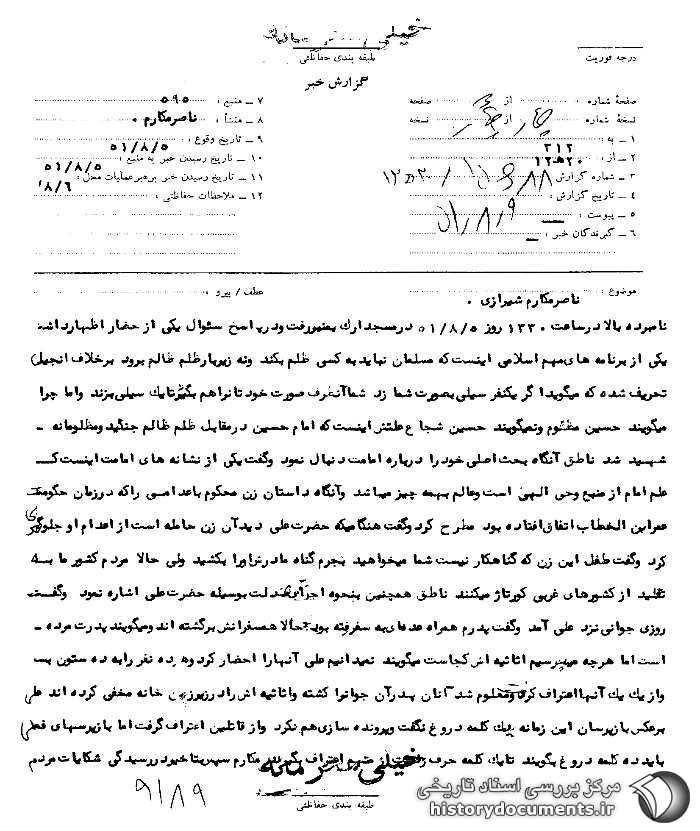 خیلی محرمانه
طبقه بندی حفاظتی
درجه فوریت
گزارش خبر
صفحهٔ شماره : از صفحه
نسخهٔ شماره : از نسخه
۱ ــ به : ۳۱۲
۲ ــ از : ۱۲ ھ ۲۰
۳ ــ شماره گزارش
۴ ــ تاریخ گزارش : ۵۱/۸/۹
۵ ــ پیوست : ــ
۶ ــ گیرندگان خبر : ــ
۷ ــ منبع : ۵۹۵
۸ ــ منشأ : ناصرمکارم .
۹ ــ تاریخ وقوع : ۵۱/۸/۵
۱۰ ــ تاریخ رسیدن خبر به منبع : ۵۱/۸/۵
۱۱ ــ تاریخ رسیدن خبر برهبرعملیات محل : ۸/۶
۱۲ ــ ملاحظات حفاظتی :
موضوع : ناصرمکارم شیرازی .
عطف / پیرو :
نامبرده بالا درساعت ۱۳۳۰ روز ۵۱/۸/۵ درمسجد ارك بمنبررفت ودرپاسخ سئوال یکی از حضار اظهارداشت
یکی از برنامه های مهم اسلامی اینست که مسلمان نباید به کسی ظلم بکند ونه زیربارظلم ظالم برود برخلاف انجیل
تحریف شده که میگوید اگر یکنفر سیلی بصورت شما زد شما آنطرف صورت خود تانراهم بگیرتایك سیلی بزند واما چرا
میگویند حسین مظلوم ونمیگویند حسین شجاع علتش اینست که امام حسین درمقابل ظلم ظالم جنگید ومظلومانه ــ
شهید شد ناطق آنگاه بحث اصلی خود را درباره امامت دنبال نمود وگفت یکی از نشانه های امامت اینست کــه
علم امام از منبع وحی الهی است وعالم بهمه چیز میباشد وآنگاه داستان زن محکوم باعدامی راکه درزمان حکومت
عمرابن الخطاب اتفاق افتاده بود مطرح کرد وگفت هنگامیکه حضرت علی دید آن زن حامله است از اعدام او جلوگیری
کرد وگفت طفل این زن که گناهکار نیست شما میخواهید بجرم گناه مادر اورا بکشید ولی حالا مردم کشور ما بــه
تقلید از کشورهای غربی کورتاژ میکنند ناطق همچنین بنحوه اجرای عدالت بوسیله حضرت علی اشاره نمود وگفــت
روزی جوانی نزد علی آمد وگفت پدرم همراه عده ای به سفر رفته بود حالا همسفرانش برگشته اند ومیگویند پدرت مرده ــ
است اما هرچه میپرسیم اثاثیه اش کجاست میگویند نمیدانیم علی آنها را احضار کرد وهر ده نفر رابه ده ستون بســت
واز یك یك آنها اعتراف گرفت ومعلوم شد آنان پدرآن جوانرا کشته واثاثیه اش رادرزیرزمین خانه مخفی کرده اند علی
برعکس بازپرسان این زمانه یك کلمه دروغ نگفت وپرونده سازی هم نکرد واز قاتلین اعتراف گرفت اما بازپرسهای فعلی
باید ده کلمه دروغ بگویند تایك کلمه حرف راست از متهم اعتراف بگیرند مکارم سپس بتاخیر دررسیدگی شکایات مردم
خیلی محرمانه
طبقه بندی حفاظتی
۹۱۸۹
مرکز بررسی اسناد تاریخی
historydocuments.ir